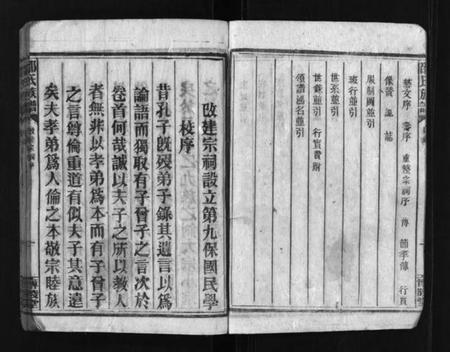 藝文序 壽序 重整宗祠序 傳 節孝傳 行頁
像贊 墓誌
服制圖並引
班行並引
世系並引
世錄並引 行實費附
領譜編名並引
邵氏族譜
改建宗祠設立第九保國民學
校序
昔孔子旣歿弟子錄其遺言以為
論語而獨取有子曾子之言次於
卷首何哉誠以夫子之所以教人
者無非以孝弟為本而有子曾子
之言尊倫重道有似夫子其意遠
矣夫孝弟為人倫之本敬宗睦族